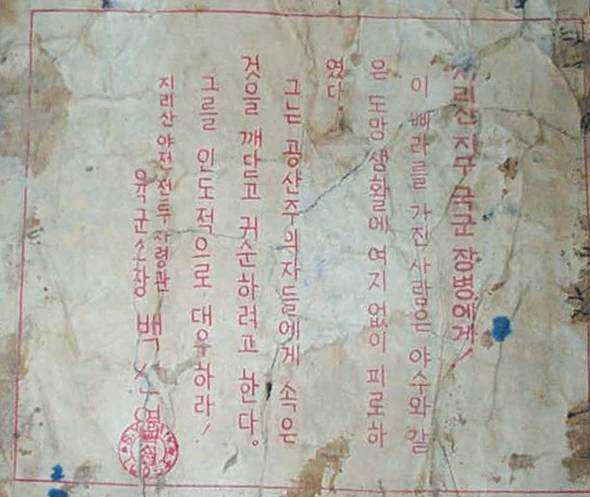 지리산 지구 국군 장병에게!
이 삐라를 가진 사람은 야수와 같
은 도망 생활에 여지 없이 피로하
였다.
그는 공산주의자들에게 속은
것을 깨닫고 귀순하려고 한다.
그를 인도적으로 대우하라!
지리산 야전 전투 사령관
육군소장 백 선엽